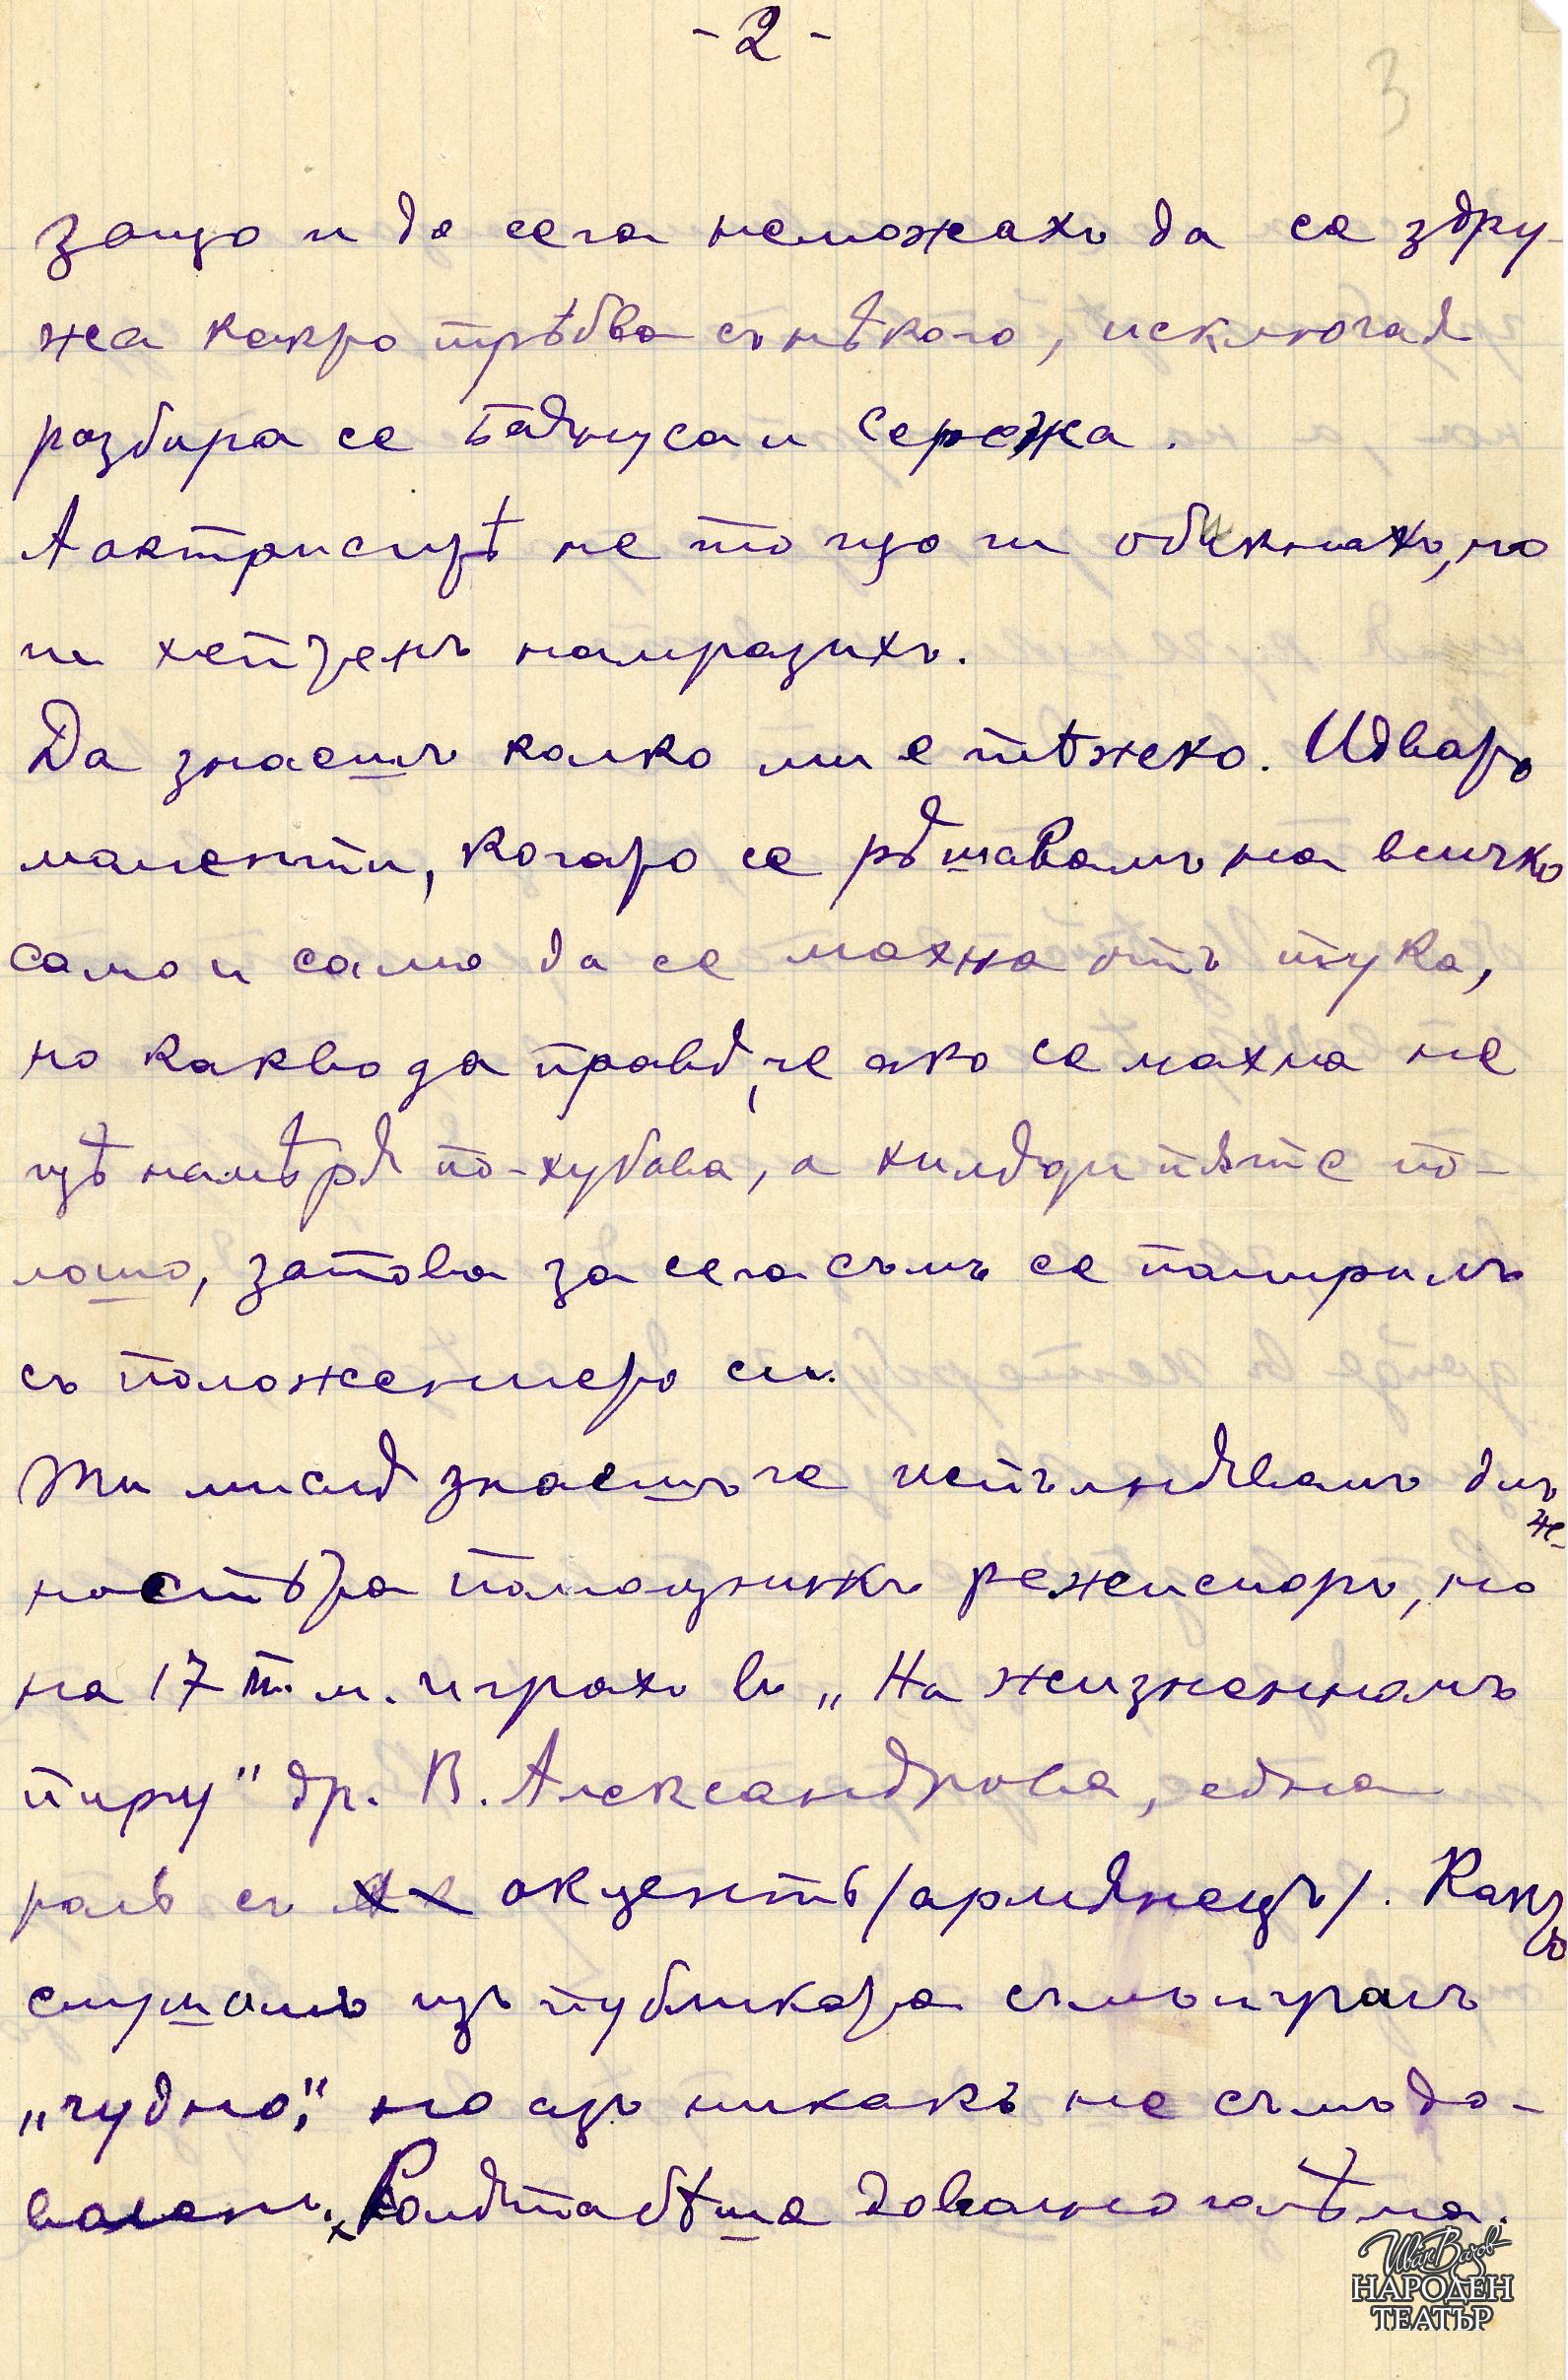 - 2 -
3
защо и до сега неможахъ да се здру-
жа както трѣбва съ нѣкого, исключая
разбира се Баянуса и Сережа.
А актриситѣ не то що ги обикнахъ, но
ги хептенъ намразихъ.
Да знаешъ колко ми е тѣжско. Идватъ
моменти, когато се рѣшавамъ на всичко
само и само да се махна отъ тука,
но какво да правя, че ако се махна не
щѣ намѣря по-хубава, а хиляди пяте по-
лошо, затова за сега съмъ се памирилъ
съ положението си.
Ти мисля знаешъ че испълнявамъ длъж-
ностьта помощникъ режисиоръ, но
на 17 т. м. играхъ въ „На жизненномъ
пиру" др. В. Александрова, една
роль съ акцентъ /армянецъ/. Както
слушамъ изъ публиката съмъ игралъ
„чудно", но азъ никакъ не съмъ до-
воленъ. Ролята бѣше довално голѣма.
Иван Вазов
НАРОДЕН
ТЕАТЪР